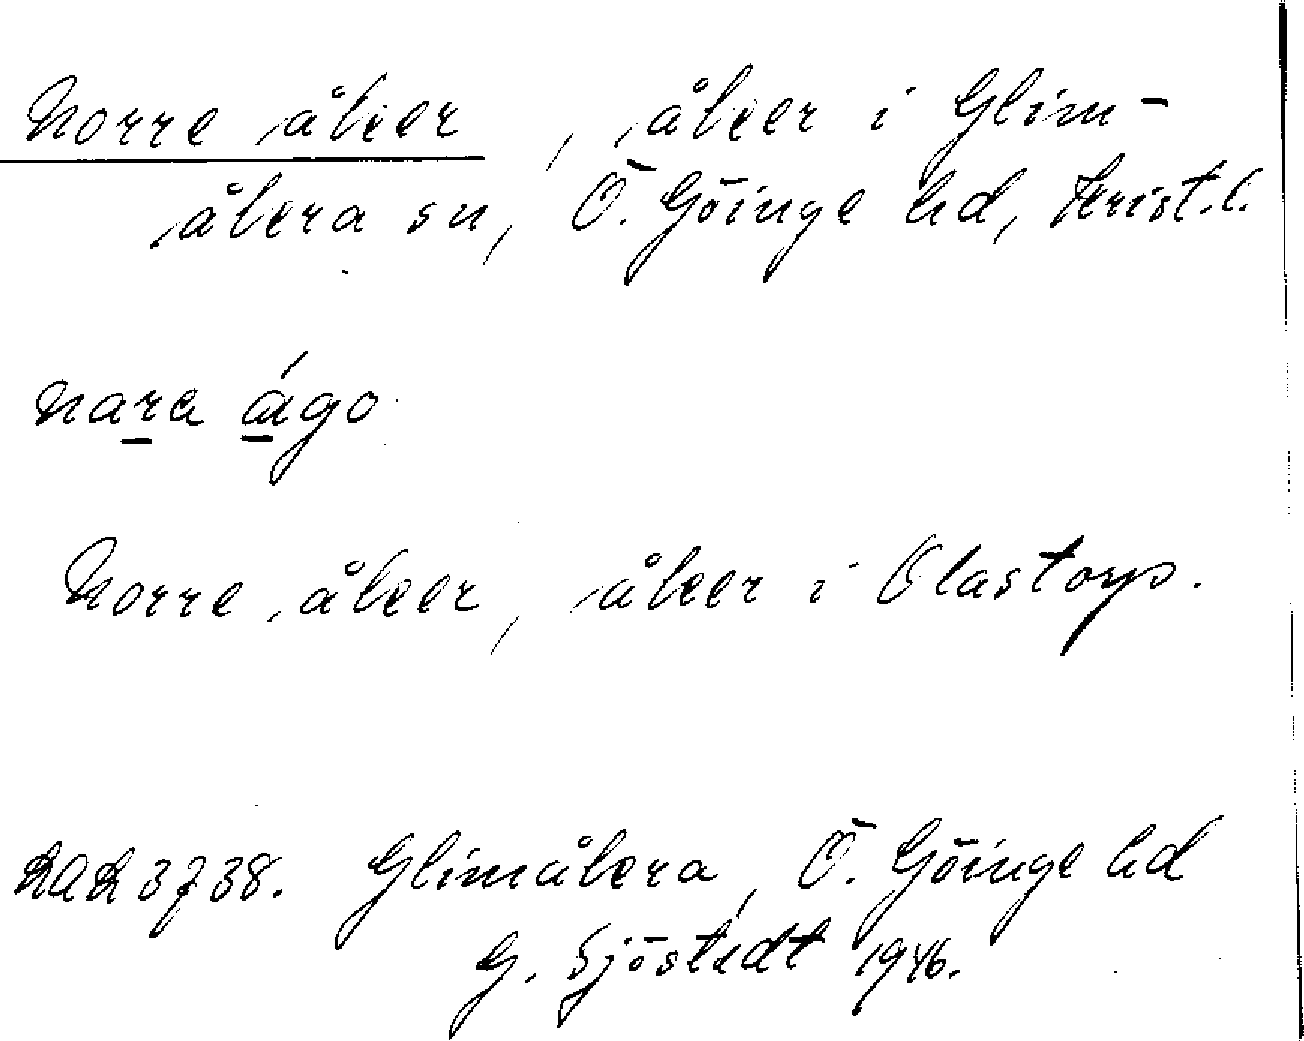 Norre åker, åker i Glim-
åkra sn, Ö. Göinge hd, Krist.l.
nara ágo
Norre åker, åker i Olastorp.
Glimåkra, Ö. Göinge hd
G. Sjöstedt 1946.